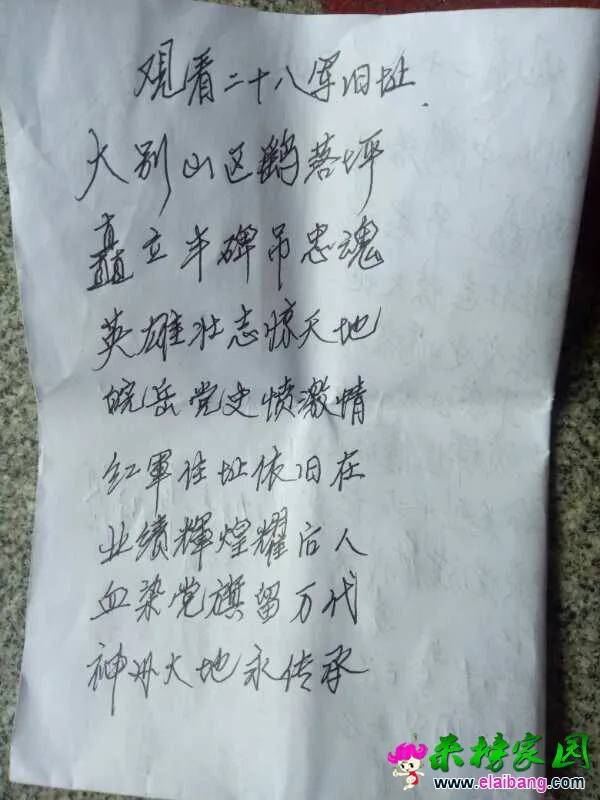 观看二十八军旧址
大别山区鹞落坪
矗立丰碑吊忠魂
英雄壮志惊天地
皖岳党史愤激情
红軍住址依旧在
业绩輝煌耀后人
血染党旗留万代
神州大地永传承
来榜家园
www.elaibang.com